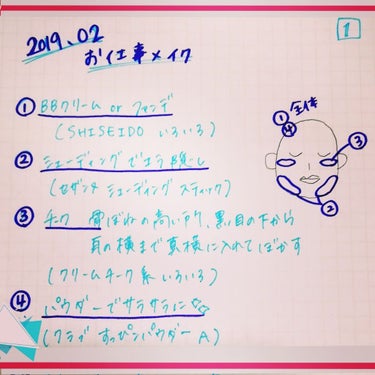 1
2019.02
お仕事メイク
① BBクリーム or ファンデ
(SHISEIDO いろいろ)
② シェーディングでエラ隠し
(セザンヌ シェーディング スティック)
③ チーク 骨ばねの高い所り、黒い目の下から
耳の横まで真横に入れてぼかす
(クリームチーク系 いろいろ)
④ パウダーでサラサラに☆☆
(クラブ すっぴんパウダー A)
全体
①
④
③
②